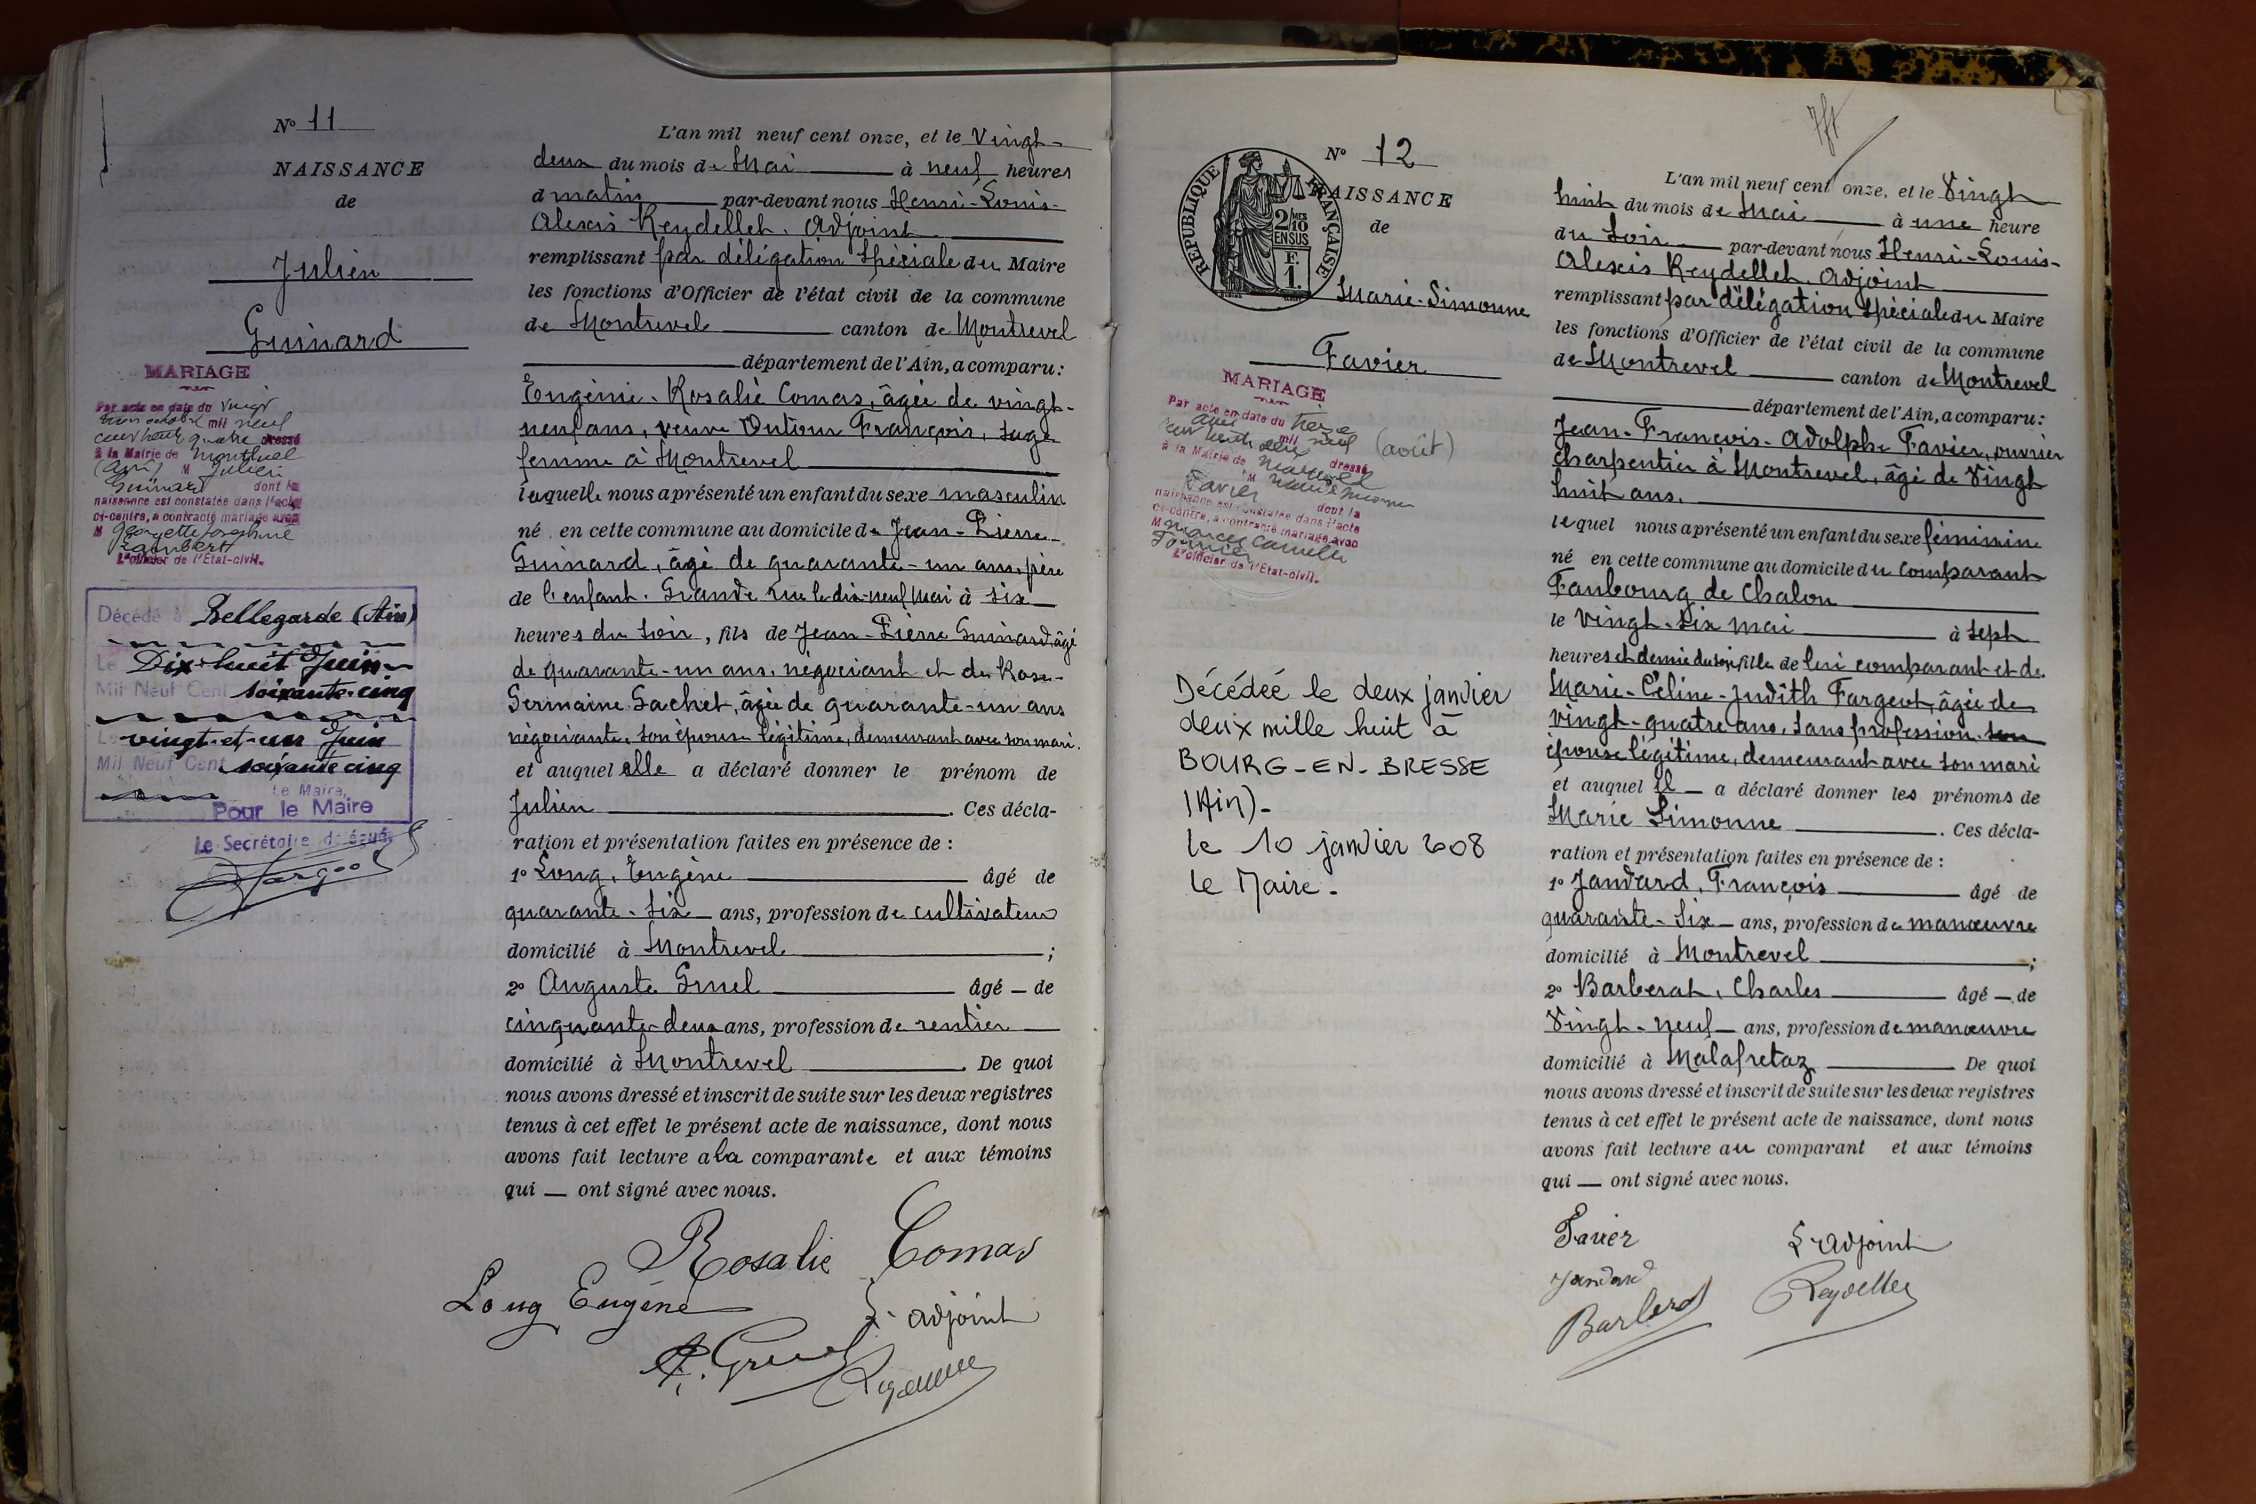 N° 11
NAISSANCE
de
Julien
Guinard
MARIAGE
Par acte en date du vingt
trois octobre mil neuf
cent trente quatre dressé
à la Mairie de Montluel
(Ain) M Julien
Guinard dont la
naissance est constatée dans l'acte
ci-contre, a contracté mariage avec
M Georgette Josephine
Lambert
L'officier de l'Etat-civil.
Décédé à Bellegarde (Ain)
Le Dix-huit Juin
Mil Neuf Cent soixante-cinq
Le vingt-et-un Juin
Mil Neuf Cent soixante cinq
Le Maire,
Pour le Maire
Le Secrétaire délégué
L'an mil neuf cent onze, et le Vingt-
deux du mois de Mai à neuf heures
d matin par-devant nous Henri-Louis-
Alexis Reydellet, Adjoint
remplissant par délégation Spéciale du Maire
les fonctions d'Officier de l'état civil de la commune
de Montrevel canton de Montrevel
département de l'Ain, a comparu:
Eugénie-Rosalie Comas, âgée de vingt-
neuf ans, veuve Dutour François, Sage
femme à Montrevel
laquelle nous a présenté un enfant du sexe masculin
né en cette commune au domicile de Jean-Pierre
Guinard, âgé de quarante-un ans, père
de l'enfant. Grande rue le dix-neuf Mai à Six
heures du Soir, fils de Jean-Pierre Guinard âgé
de quarante-un ans, négociant et de Rose-
Germaine Sachet, âgée de quarante-un ans
négociante, son épouse légitime, demeurant avec son mari.
et auquel elle a déclaré donner le prénom de
Julien . Ces décla-
ration et présentation faites en présence de :
1° Long, Eugène âgé de
quarante-six ans, profession de cultivateur
domicilié à Montrevel ;
2° Auguste Gruel âgé de
cinquante-deux ans, profession de rentier
domicilié à Montrevel . De quoi
nous avons dressé et inscrit de suite sur les deux registres
tenus à cet effet le présent acte de naissance, dont nous
avons fait lecture a la comparante et aux témoins
qui ont signé avec nous.
Rosalie Comas
Long Eugène
L'adjoint
A. Gruel
Reydellet
N° 12
REPUBLIQUE FRANÇAISE
2/10 MES
EN SUS
F.
1.
NAISSANCE
de
Marie-Simonne
Favier
MARIAGE
Par acte en date du treize
août mil neuf (août)
cent trente deux dressé
à la Mairie de Montrevel
M Marie Simonne
Favier dont la
naissance est constatée dans l'acte
ci-contre, a contracté mariage avec
M Marcel Camille
L'officier de l'Etat-civil.
Décédée le deux janvier
deux mille huit à
BOURG-EN-BRESSE
(Ain)-
le 10 janvier 2008
Le Maire-
L'an mil neuf cent onze, et le Vingt
huit du mois de Mai à une heure
du Soir par-devant nous Henri-Louis-
Alexis Reydellet, Adjoint
remplissant par délégation Spéciale du Maire
les fonctions d'Officier de l'état civil de la commune
de Montrevel canton de Montrevel
département de l'Ain, a comparu:
Jean-François-Adolphe Favier, ouvrier
charpentier à Montrevel, âgé de Vingt
huit ans.
lequel nous a présenté un enfant du sexe féminin
né en cette commune au domicile du comparant
Faubourg de Chalon
le Vingt-Six Mai à Sept
heures et demie du soir, fille de lui comparant et de
Marie-Céline-Judith Fargeot, âgée de
vingt-quatre ans, sans profession, son
épouse légitime, demeurant avec son mari
et auquel il a déclaré donner les prénoms de
Marie Simonne . Ces décla-
ration et présentation faites en présence de :
1° Jandard, François âgé de
quarante-Six ans, profession de manœuvre
domicilié à Montrevel ;
2° Barberat, Charles âgé de
Vingt-neuf ans, profession de manœuvre
domicilié à Malafretaz De quoi
nous avons dressé et inscrit de suite sur les deux registres
tenus à cet effet le présent acte de naissance, dont nous
avons fait lecture au comparant et aux témoins
qui ont signé avec nous.
Favier
L'adjoint
Jandard
Reydellet
Barberat